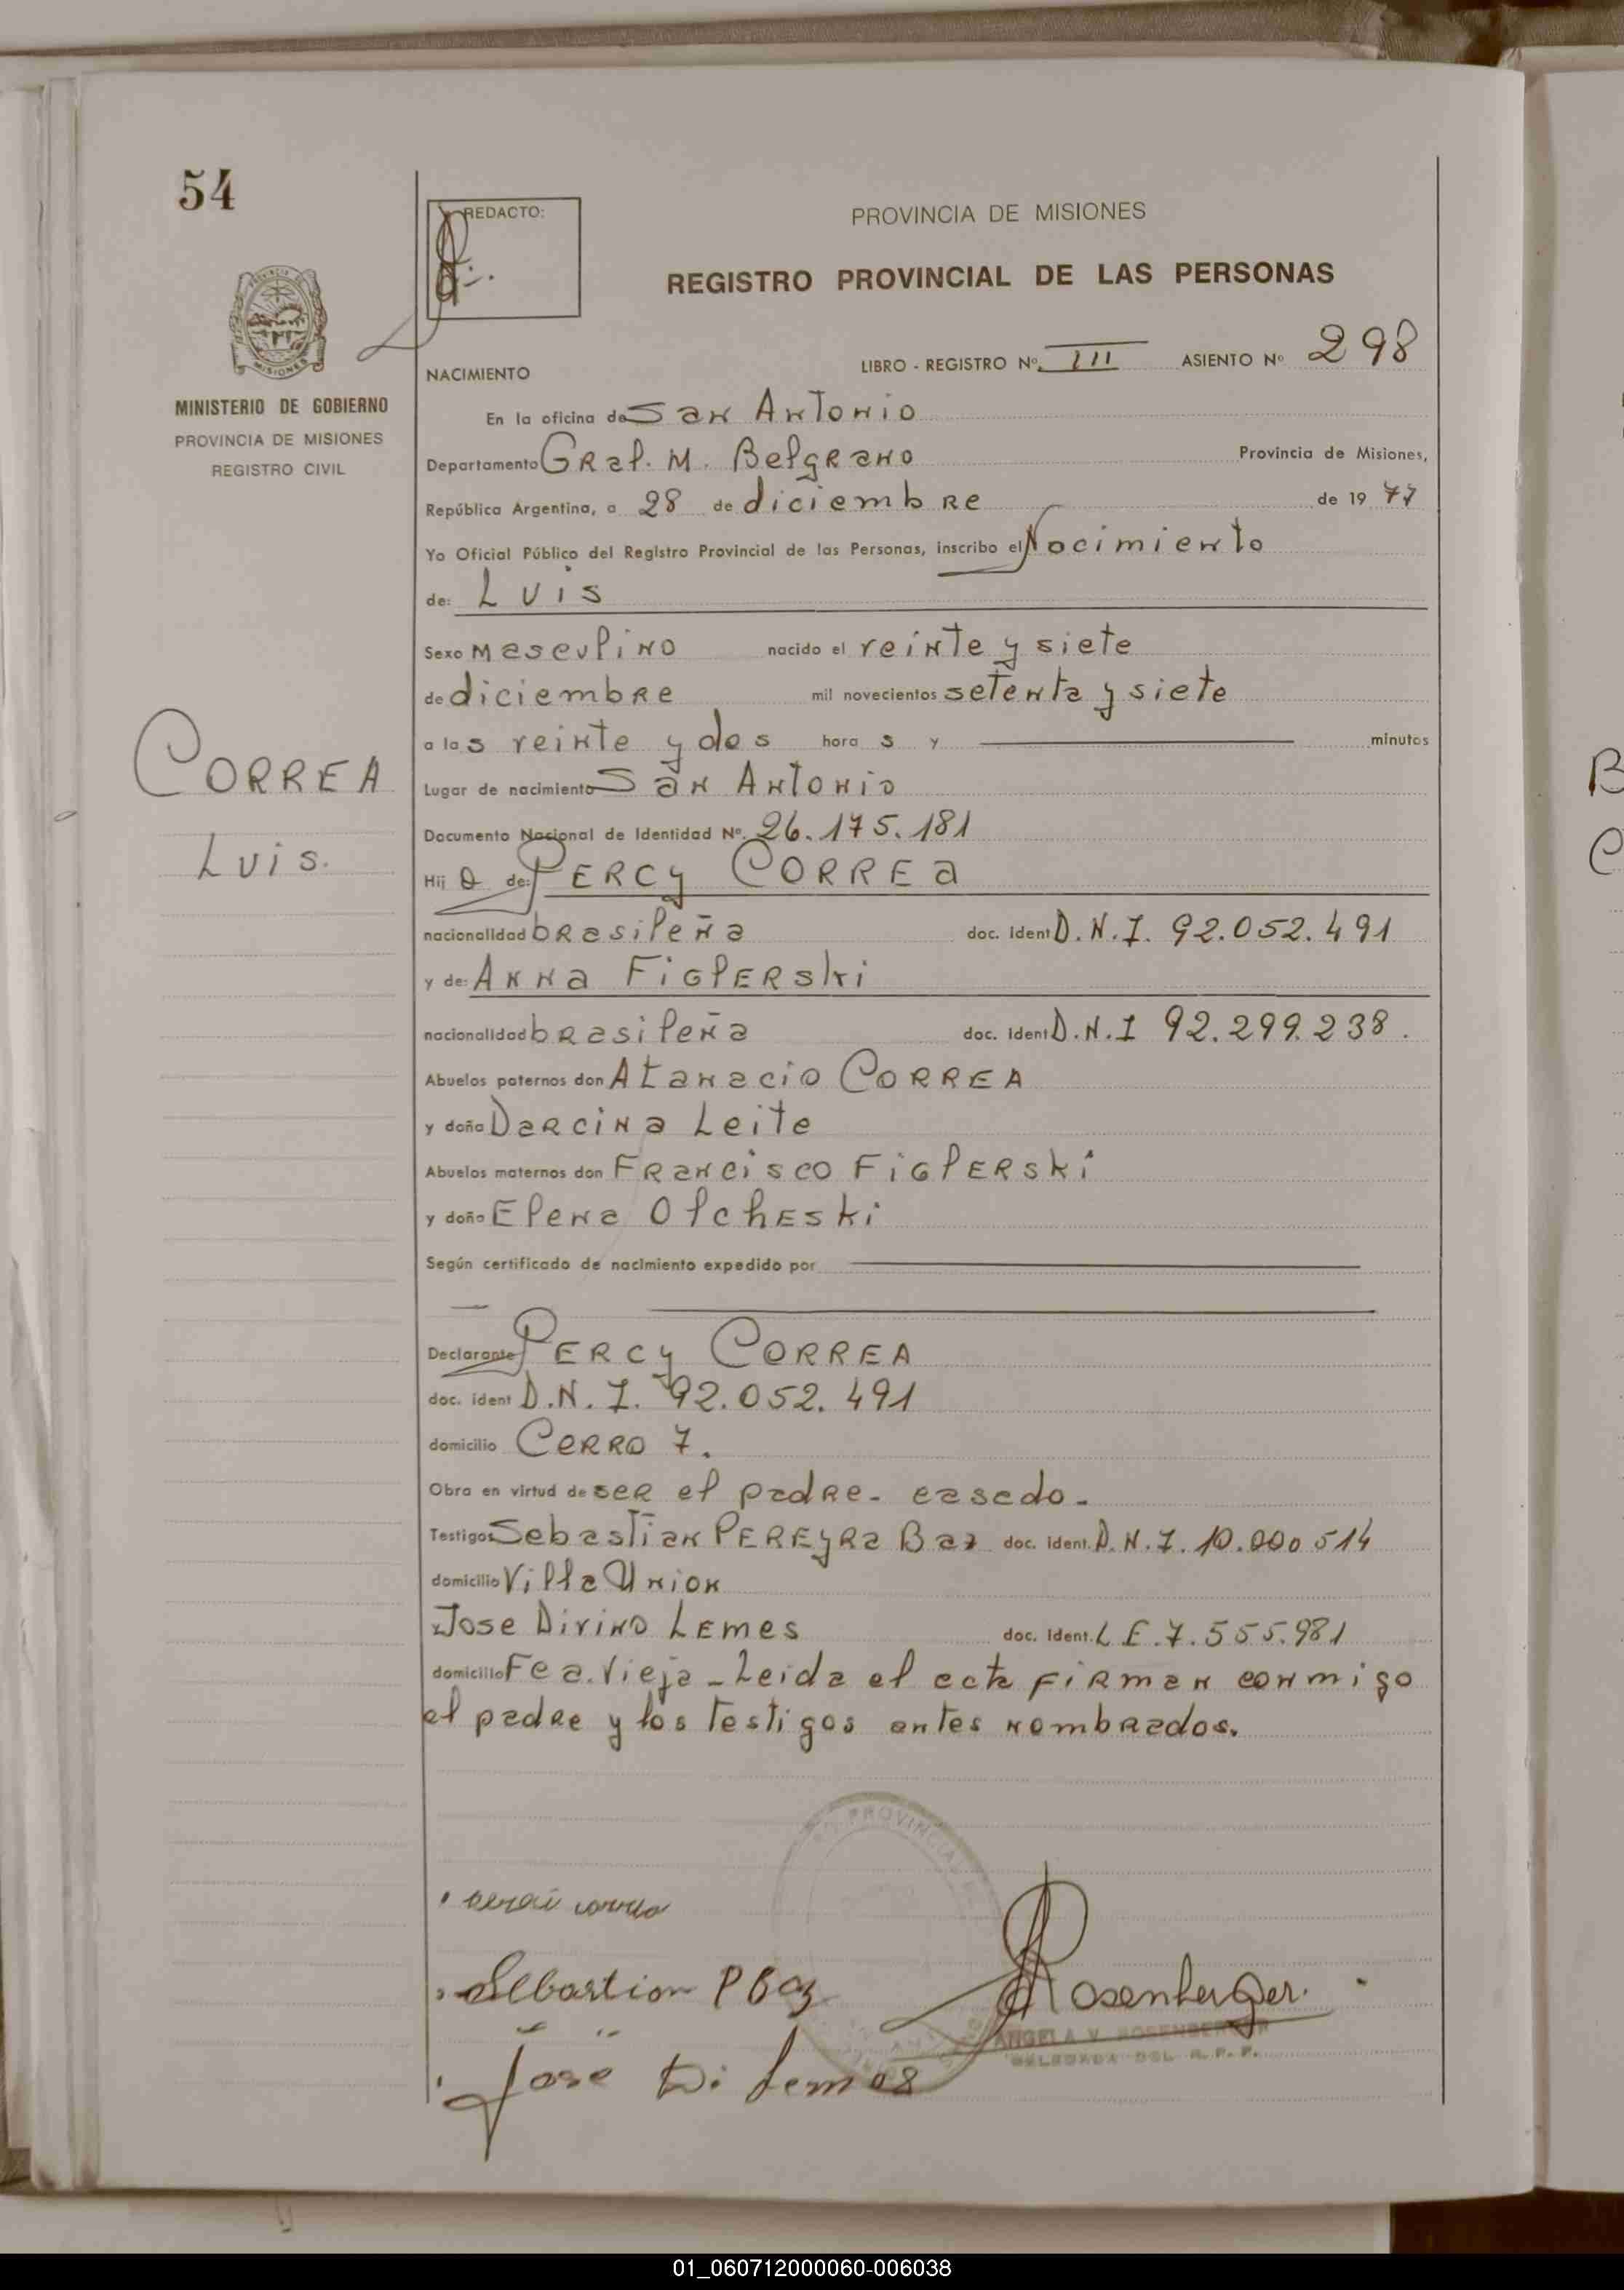 54
REDACTO:
PROVINCIA DE MISIONES
REGISTRO PROVINCIAL DE LAS PERSONAS
MISIONES
MINISTERIO DE GOBIERNO
PROVINCIA DE MISIONES
REGISTRO CIVIL
CORREA
Luis.
NACIMIENTO LIBRO - REGISTRO Nº III ASIENTO Nº 298
En la oficina de San Antonio
Departamento Gral. M. Belgrano Provincia de Misiones,
República Argentina, a 28 de diciembre de 19 77
Yo Oficial Público del Registro Provincial de las Personas, inscribo el Nacimiento
de: Luis
Sexo masculino nacido el veinte y siete
de diciembre mil novecientos setenta y siete
a las veinte y dos hora s y minutos
Lugar de nacimiento San Antonio
Documento Nacional de Identidad Nº. 26.175.181
Hij o de: PERCY CORREA
nacionalidad brasileña doc. ident D.N.I. 92.052.491
y de: Anna FiGlERski
nacionalidad brasileña doc. ident D.N.I 92.299.238.
Abuelos paternos don Atanacio CORREA
y doña Darcina Leite
Abuelos maternos don Francisco FiGlERski
y doña Elena OlchEski
Según certificado de nacimiento expedido por
Declarante PERCY CORREA
doc. ident D.N.I. 92.052.491
domicilio CERRO 7.
Obra en virtud de ser el padre - casado -
Testigos Sebastian PEREYRa Baz doc. ident. D.N.I. 10.000 514
domicilio Villa Union
Jose Divino LEmes doc. ident. L E. 7.555.981
domicilio Fca. Vieja - Leida el acta firman conmigo
el padre y los testigos antes nombrados.
PROVINCIAL
Sebastion P Baz
Rosenberger.
ANGELA V. ROSENBERGER
DELEGADA DEL R. P. P.
José Di Lemos
B
C
01_060712000060-006038